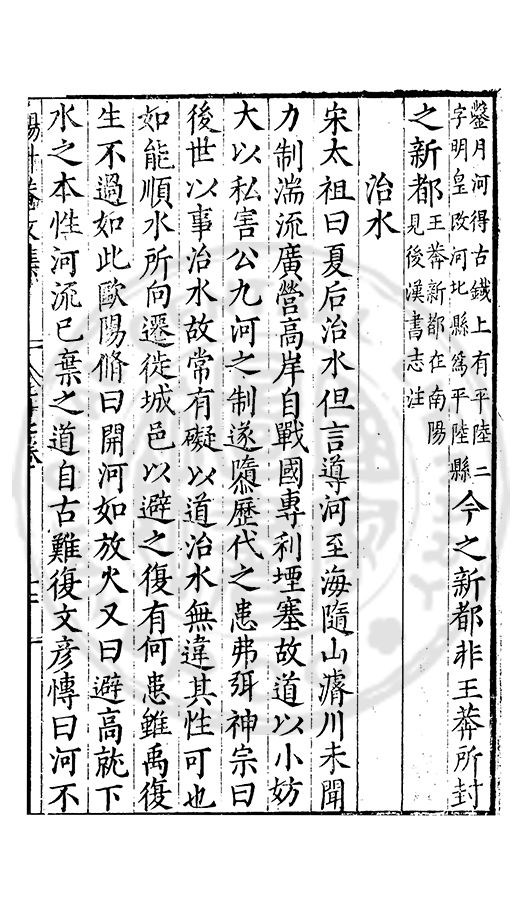 鑿月河得古鐵上有平陸二
字明皇改河北縣爲平陸縣今之新都非王莽所封
之新都王莽新都在南陽
見後漢書志注
治水
宋太祖曰夏后治水但言導河至海隨山濬川未聞
力制湍流廣營高岸自戰國專利堙塞故道以小妨
大以私害公九河之制遂隳歷代之患弗弭神宗曰
後世以事治水故常有礙以道治水無違其性可也
如能順水所向遷徙城邑以避之復有何患雖禹復
生不過如此歐陽脩曰開河如放火又曰避高就下
水之本性河流已棄之道自古難復文彦愽曰河不